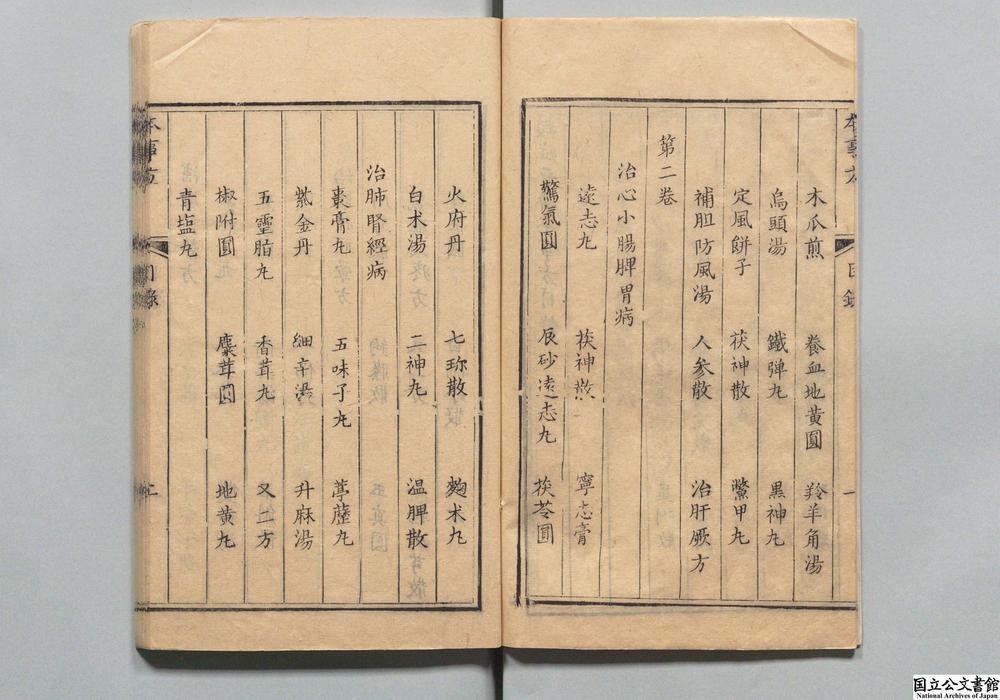 本事方 目錄 一
木瓜煎 養血地黃圓 羚羊角湯
烏頭湯 鐵弹丸 黒神丸
定風餅子 茯神散 鱉甲丸
補胆防風湯 人參散 治肝厥方
第二卷
治心小腸脾胃病
遠志丸 茯神散 寧志膏
驚氣圓 辰砂遠志丸 茯苓圓
火府丹 七珎散 麴术丸
白术湯 二神丸 温脾散
治肺腎經病
棗膏丸 五味子丸 葶藶丸
紫金丹 細辛湯 升麻湯
五靈脂丸 香茸丸 又二方
椒附圓 麋茸圓 地黄丸
青塩丸
本事方 目錄 二
国立公文書館
National Archives of Japan